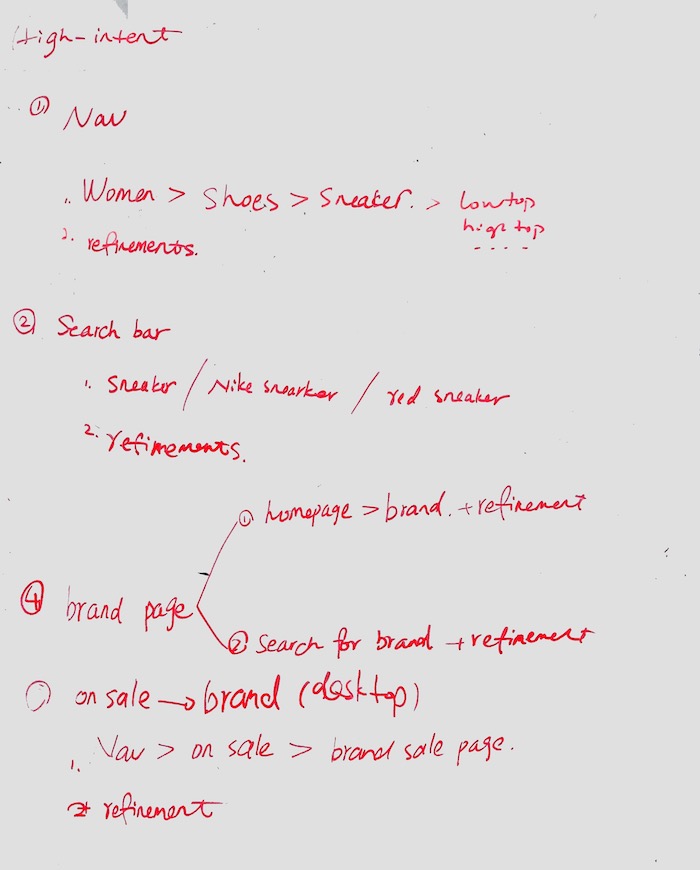 High-intent
① Nav
1. Women > Shoes > Sneaker. > low top
high top
....
2. refinements.
② Search bar
1. Sneaker / Nike snearker / red sneaker
2. refinements.
① homepage > brand. + refinement
④ brand page
② Search for brand + refinement
on sale → brand (desktop)
1. Nav > on sale > brand sale page.
2. refinement